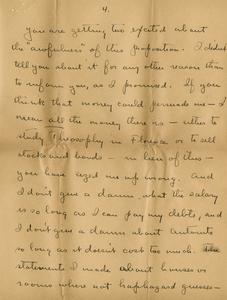 4.
You are getting too excited about
the "awfulness" of this proposition. I didn't
tell you about it for any other reason than
to inform you, as I promised. If you
think that money could persuade me - I
mean all the money there is - either to
study Philosophy in Florence or to sell
stocks and bonds - in lieu of this -
you have sized me up wrong. And
I don't give a damn what the salary
is so long as I can pay my debts, and
I don't give a damn about
so long as it doesn't cost too much. The
statements I made about houses or
rooms where not haphazard guesses -